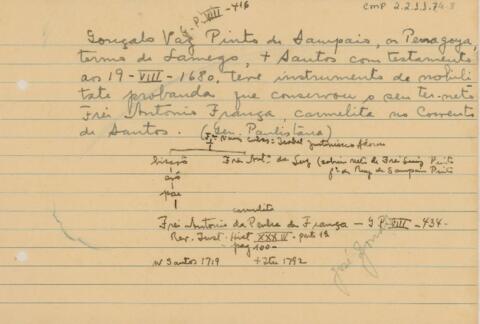 CMP 2.2.11.74-3
G.P. VIII - 416
Gonçalo Vaz Pinto de Sampaio, de Penagoya,
termo de Lamego, + Santos com testamento
aos 19-VIII-1680, teve instrumento de nobili
tate probanda que conservou o seu ter-neto
Frei Antonio França, carmelita no Convento
de Santos. (Gen. Paulistana)
Isabel
bisavô
Frei Antº da Luz (sobrinho neto de Frei Luiz Pinto
fº de Ruy de Sampaio Pinto
avô
pae
carmelita
Frei Antonio da Penha de França - G.P. VIII - 434 -
Rev. Inst. Hist. XXXIV - parte 1ª
pag 100 -
n Santos 1719 + Itu 1792
José